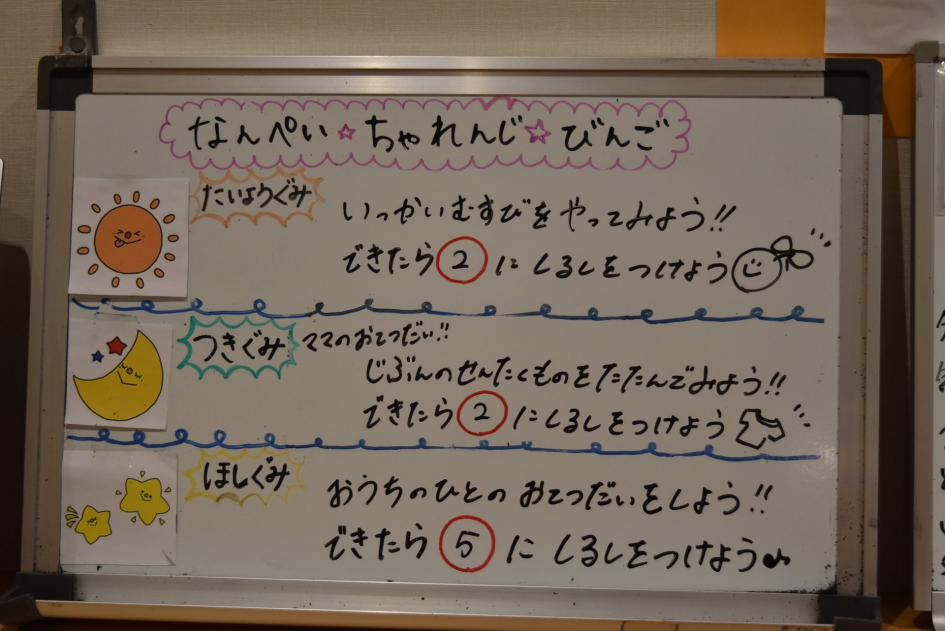 なんぺい☆ちゃれんじ☆びんご
たいようぐみ
いっかいむすびをやってみよう!!
できたら②にしるしをつけよう
つきぐみ
ママのおてつだい!!
じぶんのせんたくものをたたんでみよう!!
できたら②にしるしをつけよう
ほしぐみ
おうちのひとのおてつだいをしよう!!
できたら⑤にしるしをつけよう♪